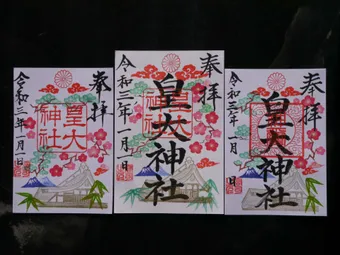 奉拝
皇大
神社
令和三年一月一日
奉拝
皇大神社
令和三年一月一日
奉拝
皇大神社
令和三年一月一日